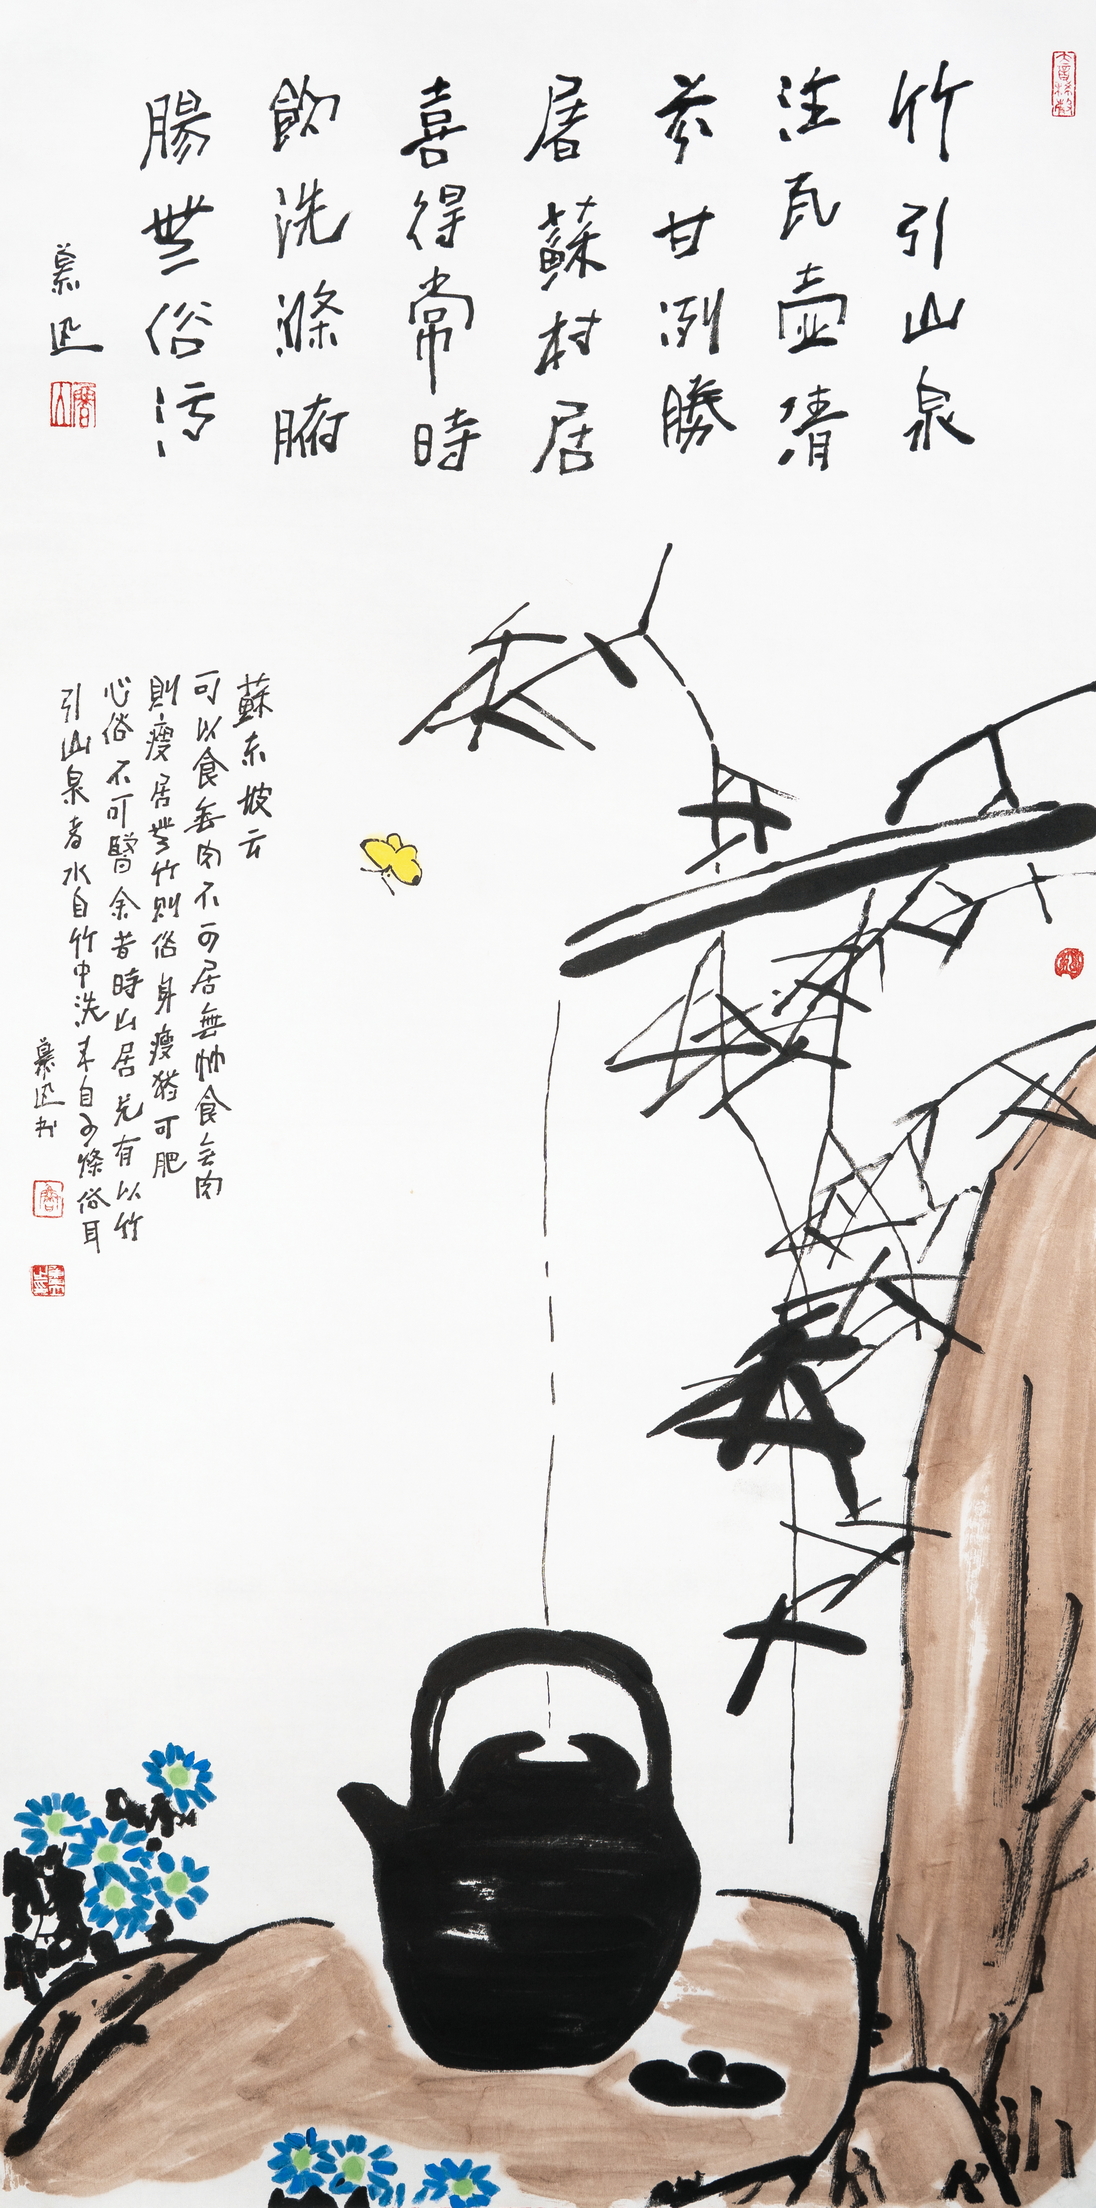 竹引山泉
注瓦壺清
芬甘冽勝
屠蘇村居
喜得常時
飲洗滌腑
腸無俗污
慕迅
蘇東坡云
可以食無肉不可居無竹食無肉
則瘦居無竹則俗身瘦猶可肥
心俗不可醫余昔時山居尤有以竹
引山泉者水自竹中洗来自可滌俗耳
慕迅书